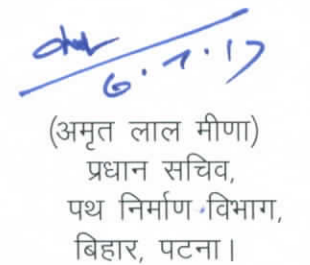 6.7.17
(अमृत लाल मीणा)
प्रधान सचिव,
पथ निर्माण विभाग,
बिहार, पटना।